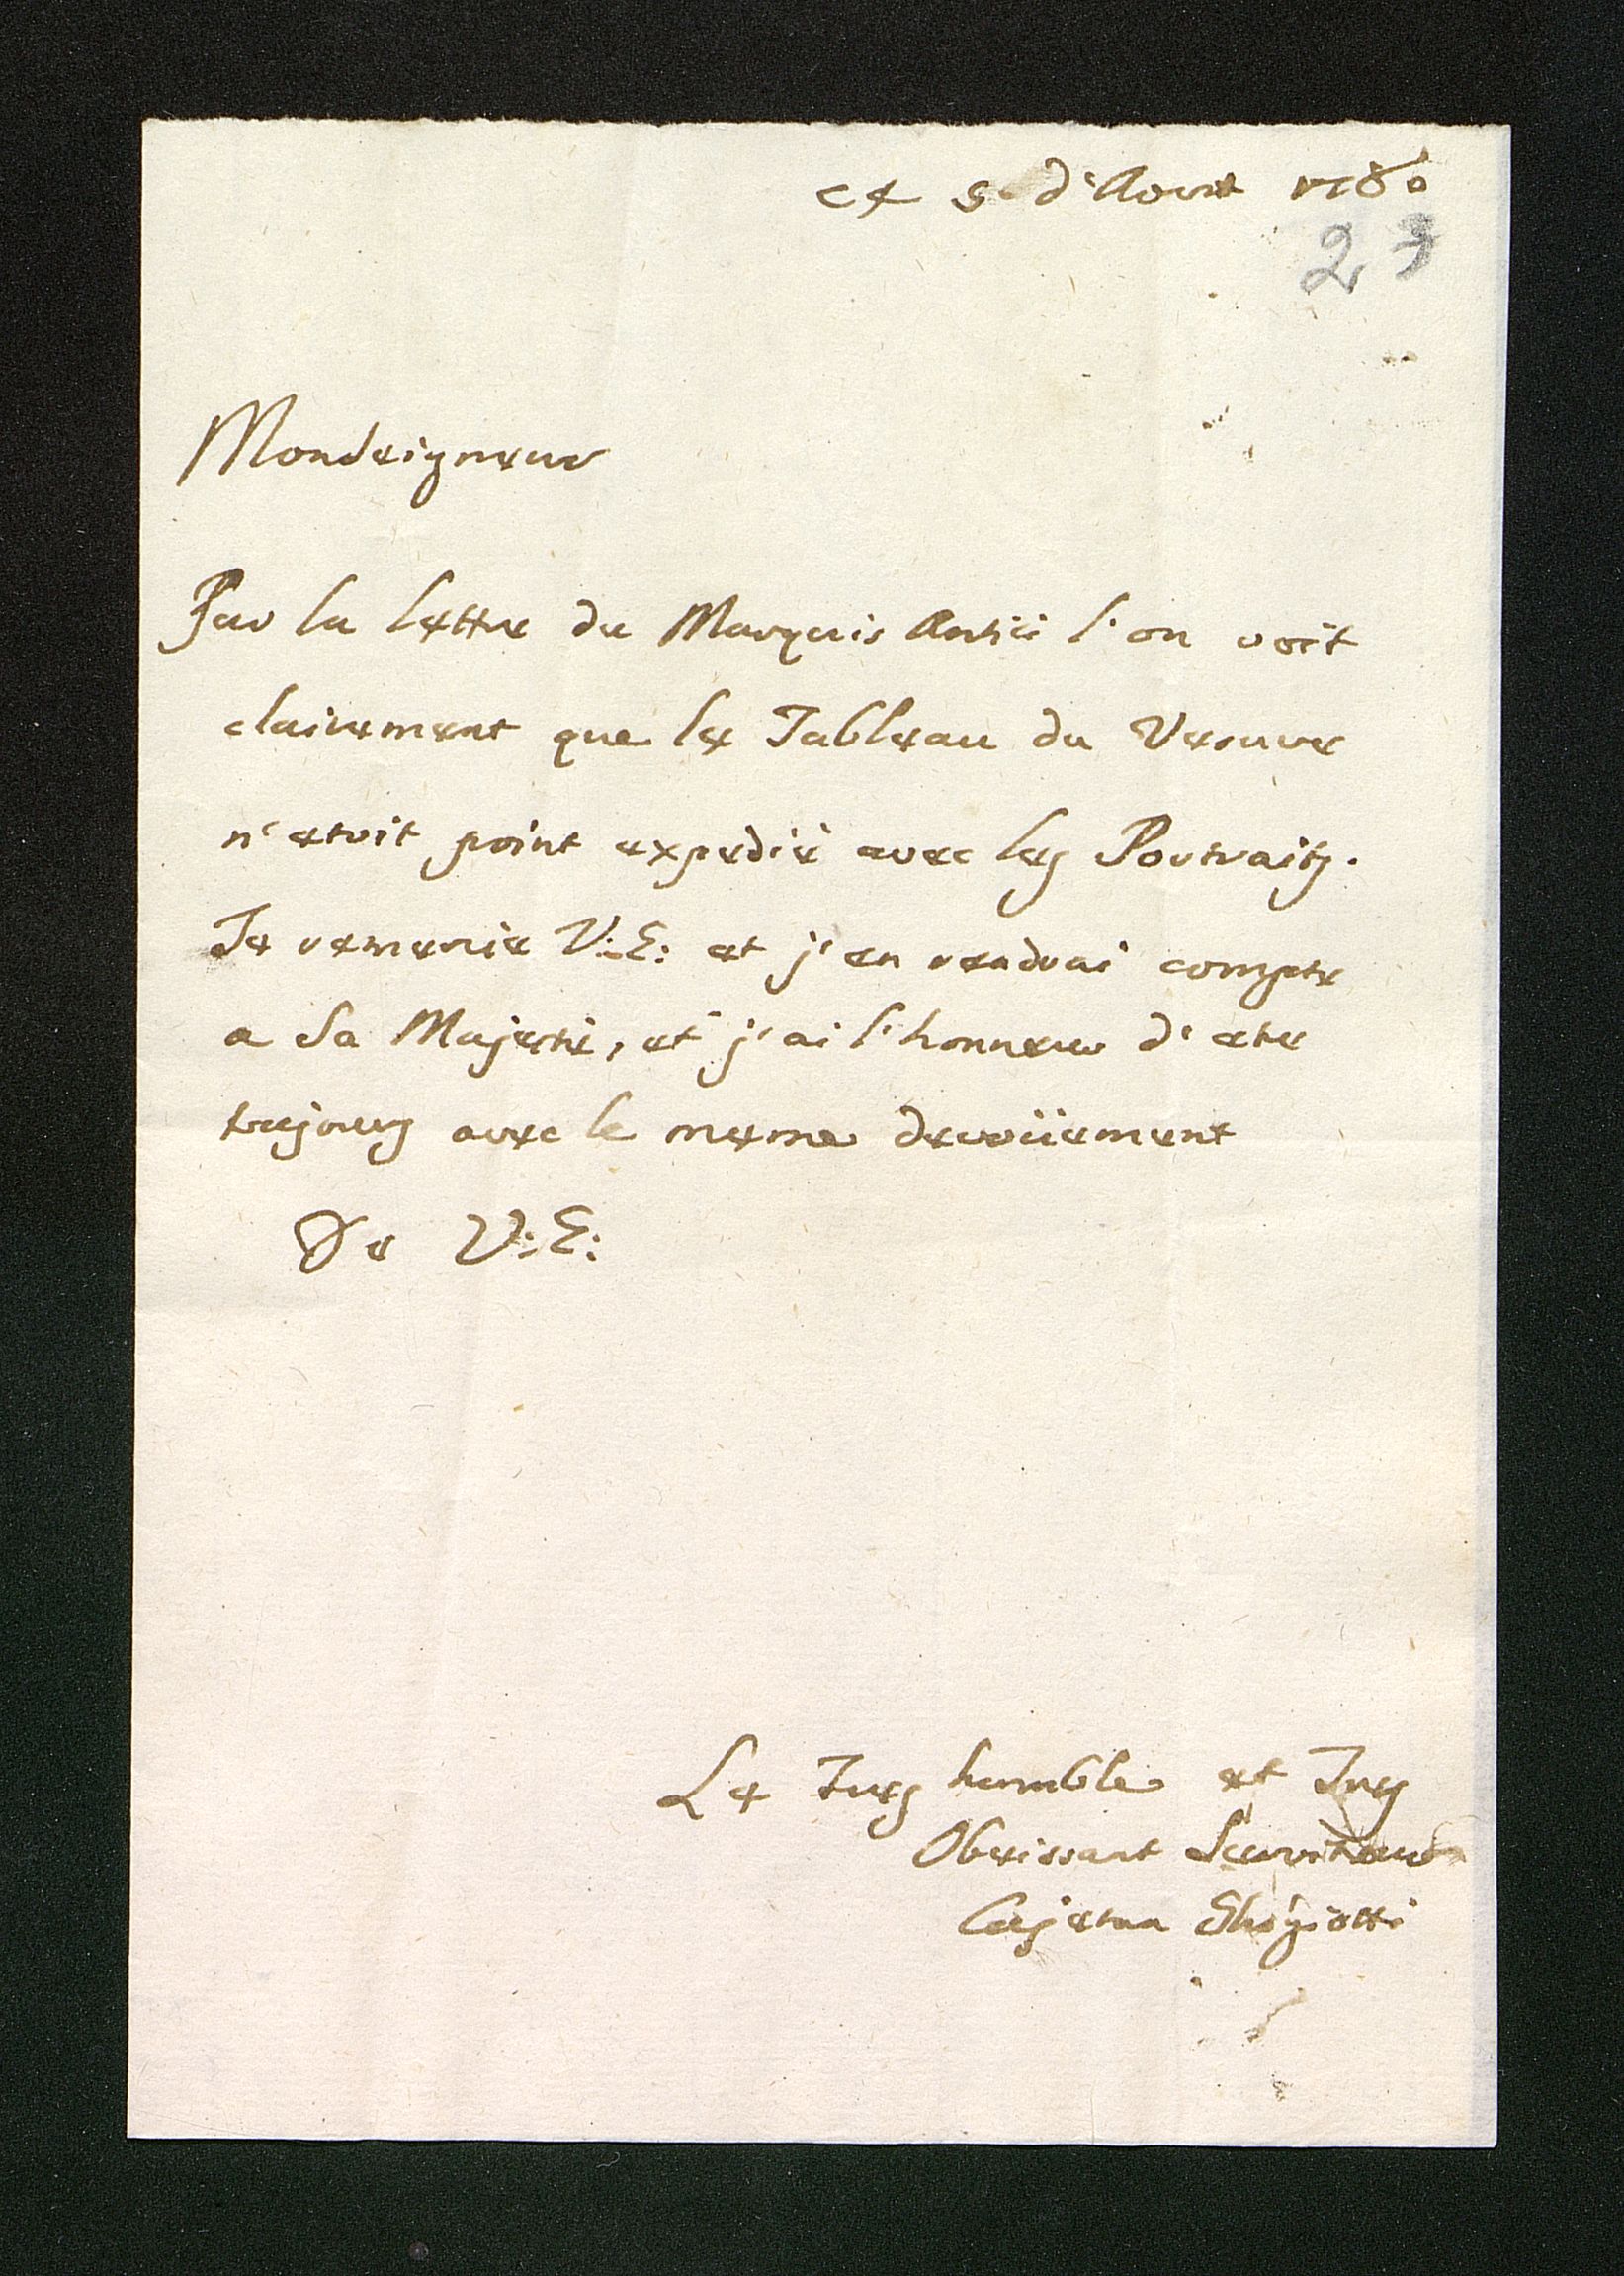 ce 5 d'Aout 1780
23
Monseigneur
Par la lettre du Marquis Antici l'on voit
clairement que le Tableau du Vesuve
n'etoit point expedié avec les Portraits.
Je remercie V: E: et j'en rendrai compte
a Sa Majesté, et j'ai l'honneur d'etre
toujours avec le meme devoüement
De V: E:
Le Tres humble et Tres
Obeissant Serviteur
Cajetan Ghigiotti